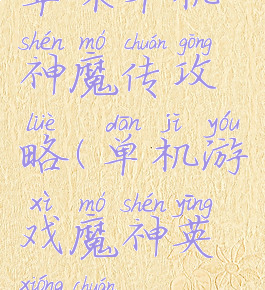 shén mó chuán gōng
神魔传攻
lüè dān jī yóu
略(单机游
xì mó shén yīng
戏魔神英
xióng chuán